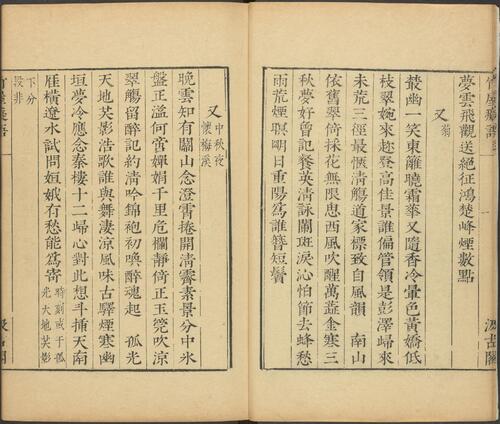 夢雲飛觀送絕征鴻楚峰煙數點
又菊
叢幽一笑東籬曉霜華又隨香冷暈色黃嬌低
枝翠婉來趁登高佳景誰偏管領是彭澤歸來
未荒三徑最愜清觴道家標致自風韻 南山
依舊翠倚採花無限思西風吹醒萬蘂金寒三
秋夢好曾記餐英清詠闌斑淚沁怕節去蜂愁
雨荒煙暝明日重陽爲誰簪短鬢
又中秋夜
懷梅溪
晚雲知有關山念澄霄捲開清霽素景分中冰
盤正溢何啻嬋娟千里危欄靜倚正玉筦吹涼
翠觴留醉記約清吟錦袍初喚醉魂起 孤光
天地共影浩歌誰與舞淒涼風味古驛煙寒幽
垣夢冷應念秦樓十二歸心對此想斗插天南
雁橫遼水試問姮娥有愁能爲寄
時刻或于孤
光天地共影
下分
段非